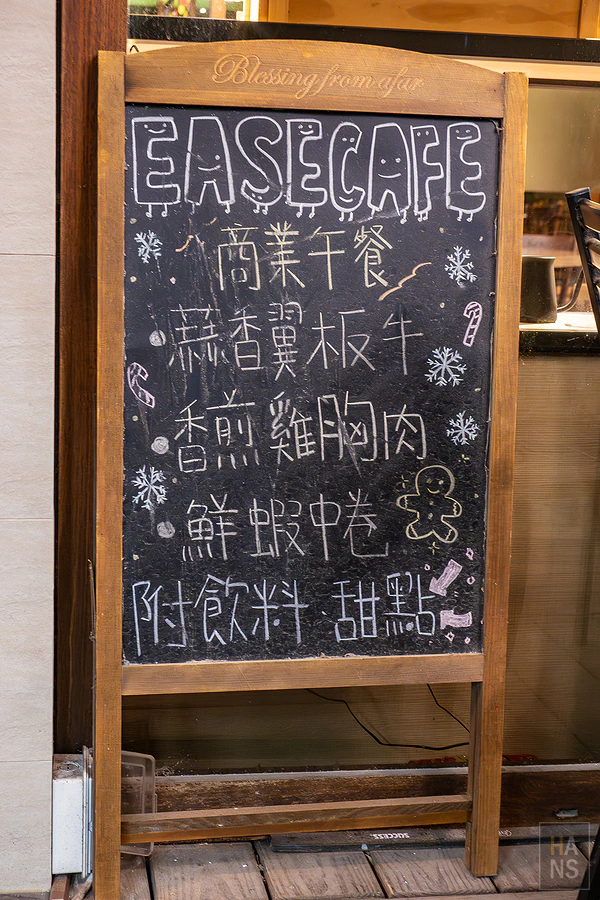 Blessing from afar
EASECAFE
商業午餐
蒜香翼板牛
香煎雞胸肉
鮮蝦中卷
附飲料 甜點
SUCCESS
HANS